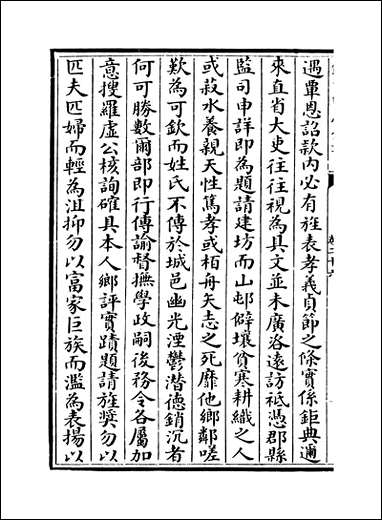 遇覃恩詔款內必有旌表孝義貞節之條實係鉅典邇
來直省大吏往往視為具文並未廣洛遠訪祗憑郡縣
監司申詳即為題請建坊而山邨僻壤貧寒耕織之人
或菽水養親天性篤孝或栢舟矢志之死靡他鄉鄰嗟
歎為可欽而姓氏不傳於城邑幽光湮鬱潛德銷沉者
何可勝數爾部即行傳諭督撫學政嗣後務令各屬加
意搜羅虛公核詢確具本人鄉評實蹟題請旌奬勿以
匹夫匹婦而輕為沮抑勿以富家巨族而濫為表揚以